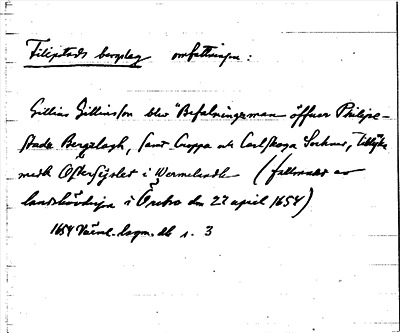 Filipstads bergslag omfattning:
Gillius Gilliusson blev "Befalningsman öffuer Philips-
stadz Bergzlagh, samt Croppa och Carlskoga Sochnar, tillijka
medh OsterSysslet i Wermelandh (fullmakt av
landshövdinge i Örebro den 27 april 1654)
1654 Värml. lagm. db s. 3